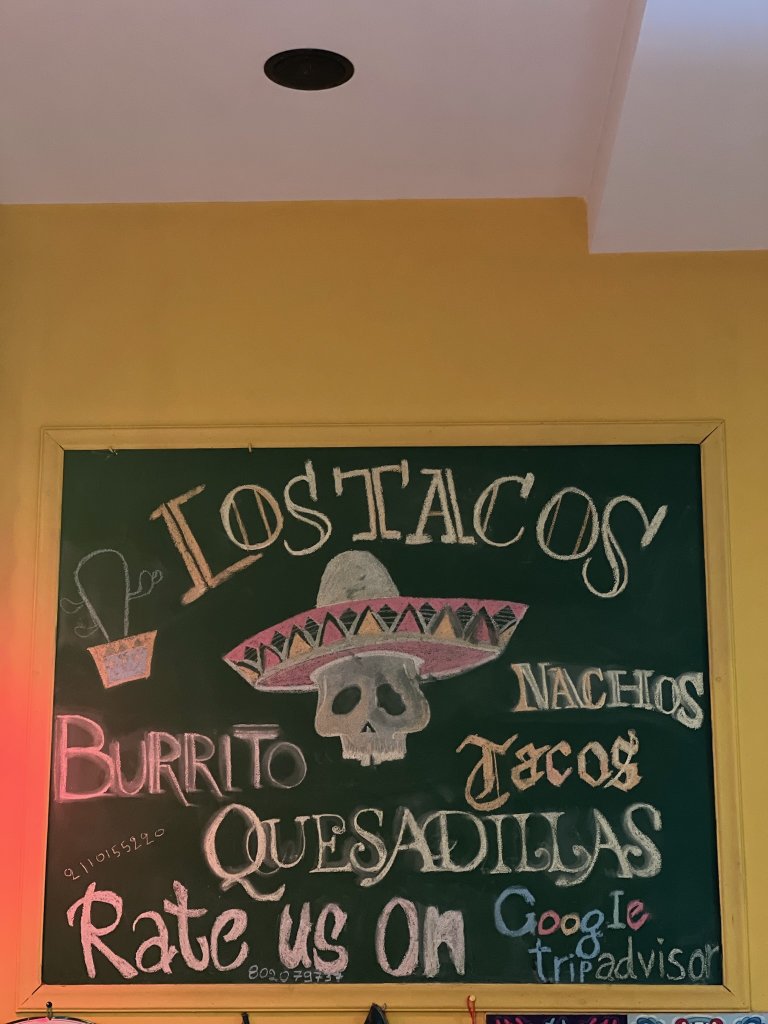 LOS TACOS
NACHOS
BURRITO
TACOS
QUESADILLAS
2110155220
Rate us On
GoogIe
tripadvisor